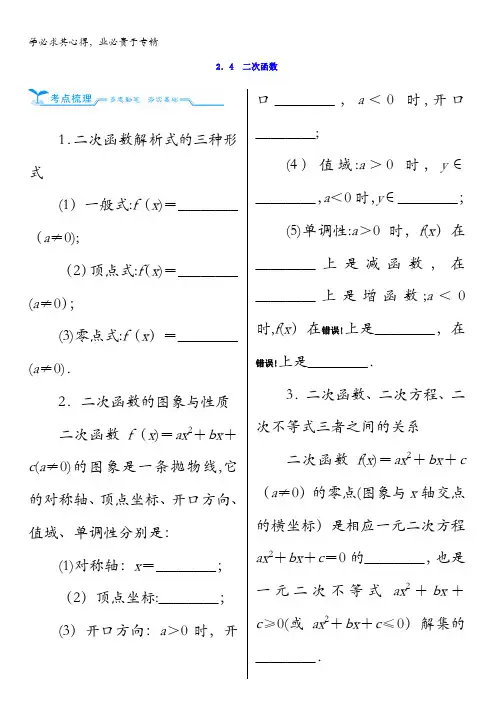 学必求其心得，业必贵于专精
2．4 二次函数
考点梳理 多思勤笔 夯实基础
1．二次函数解析式的三种形
式
(1）一般式:f（x)＝________
（a≠0);
（2）顶点式:f（x)＝________
(a≠0）；
(3)零点式:f（x）＝________
(a≠0)．
2．二次函数的图象与性质
二次函数 f（x)＝ax²＋bx＋
c(a≠0)的图象是一条抛物线,它
的对称轴、顶点坐标、开口方向、
值域、单调性分别是：
(1)对称轴：x＝________；
（2）顶点坐标:________；
(3）开口方向：a＞0 时，开
口________，a＜0 时,开口
________;
(4）值域:a＞0 时，y∈
________,a＜0时,y∈________；
(5)单调性:a＞0 时，f(x）在
________上是减函数，在
________上是增函数;a＜0
时,f(x）在错误!上是________，在
错误!上是________．
3．二次函数、二次方程、二
次不等式三者之间的关系
二次函数 f(x)＝ax²＋bx＋c
（a≠0）的零点(图象与 x 轴交点
的横坐标）是相应一元二次方程
ax²＋bx＋c＝0 的________，也是
一元二次不等式 ax²＋bx＋
c≥0(或 ax²＋bx＋c≤0）解集的
________．